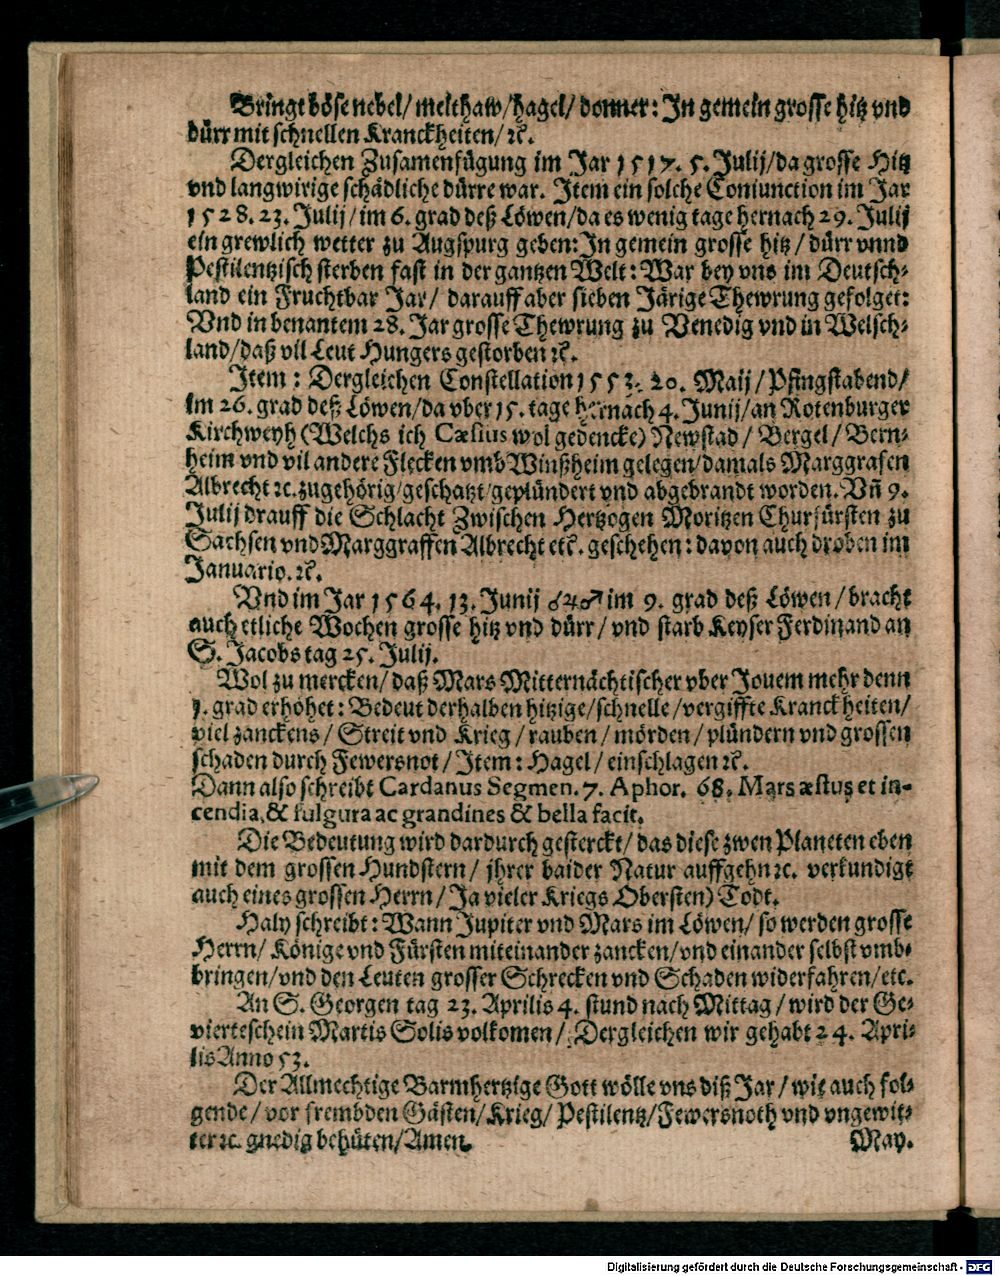 Bringt böse nebel/ melthaw/ hagel/ donner: In gemein grosse hitz vnd
dürr mit schnellen Kranckheiten/ ꝛc.
Dergleichen Zusamenfügung im Jar 1517. 5. Julij/ da grosse Hitz
vnd langwirige schädliche dürre war. Item ein solche Coniunction im Jar
1528. 23. Julij/ im 6. grad deß Löwen/ da es wenig tage hernach 29. Julij
ein grewlich wetter zu Augspurg geben: In gemein grosse hitz/ dürr vnnd
Pestilentzisch sterben fast in der gantzen Welt: War bey vns im Deutsch-
land ein Fruchtbar Jar/ darauff aber sieben Järige Thewrung gefolget:
Vnd in benantem 28. Jar grosse Thewrung zu Venedig vnd in Welsch-
land/ daß vil Leut Hungers gestorben ꝛc.
Item: Dergleichen Constellation 1553. 20. Maij/ Pfingstabend/
im 26. grad deß Löwen/ da vber 15. tage hernach 4. Junij/ an Rotenburger
Kirchweyh (Welchs ich Cæsius wol gedencke) Newstad/ Bergel/ Bern-
heim vnd vil andere Flecken vmb Winßheim gelegen/ damals Marggrafen
Albrecht ꝛc. zugehörig/ geschatzt/ geplündert vnd abgebrandt worden. Vñ 9.
Julij drauff die Schlacht Zwischen Hertzogen Moritzen Churfürsten zu
Sachsen vnd Marggraffen Albrecht etc. geschehen: davon auch droben im
Januario. ꝛc.
Vnd im Jar 1564. 13. Junij ☌♃♂ im 9. grad deß Löwen/ bracht
auch etliche Wochen grosse hitz vnd dürr/ vnd starb Keyser Ferdinand an
S. Jacobs tag 25. Julij.
Wol zu mercken/ daß Mars Mitternächtischer vber Jouem mehr denn
1. grad erhöhet: Bedeut derhalben hitzige/ schnelle/ vergiffte Kranckheiten/
viel zanckens/ Streit vnd Krieg/ rauben/ mörden/ plündern vnd grossen
schaden durch Fewersnot/ Item: Hagel/ einschlagen ꝛc.
Dann also schreibt Cardanus Segmen. 7. Aphor. 68. Mars æstus et in-
cendia, & fulgura ac grandines & bella facit.
Die Bedeutung wird dardurch gesterckt/ das diese zwen Planeten eben
mit dem grossen Hundstern/ jhrer baider Natur auffgehn ꝛc. verkundigt
auch eines grossen Herrn/ Ja vieler Kriegs Obersten) Todt.
Haly schreibt: Wann Jupiter vnd Mars im Löwen/ so werden grosse
Herrn/ Könige vnd Fürsten miteinander zancken/ vnd einander selbst vmb-
bringen/ vnd den Leuten grosser Schrecken vnd Schaden widerfahren/ etc.
An S. Georgen tag 23. Aprilis 4. stund nach Mittag/ wird der Ge-
vierteschein Martis Solis volkomen/ Dergleichen wir gehabt 24. Apri-
lis Anno 53.
Der Allmechtige Barmhertzige Gott wölle vns diß Jar/ wie auch fol-
gende/ vor frembden Gästen/ Krieg/ Pestilentz/ Fewersnoth vnd vngewit-
ter ꝛc. gnedig behüten/ Amen.
May.
Digitalisierung gefördert durch die Deutsche Forschungsgemeinschaft - DFG